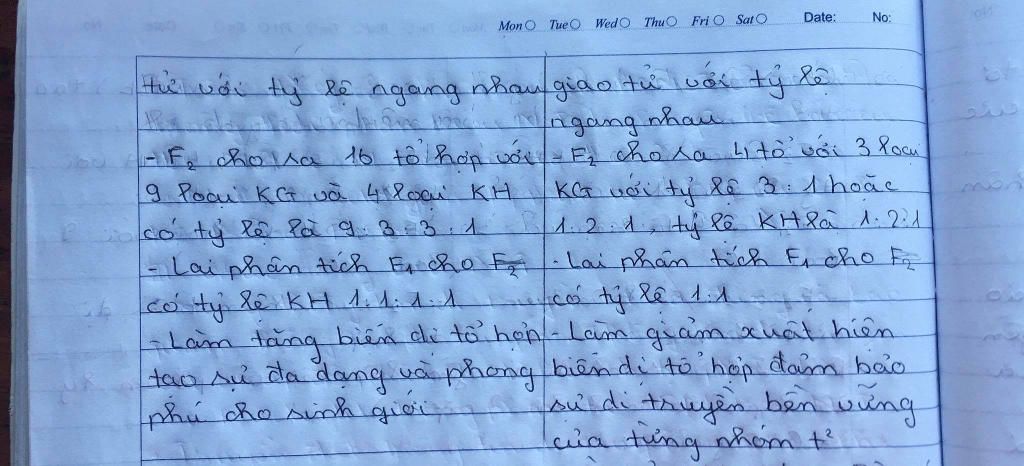 Mon Tue Wed Thu Fri Sat Date: No:
tử với tỷ lệ ngang nhau
- F2 cho ra 16 tổ hợp với
9 loại KG và 4 loại KH
có tỷ lệ là 9:3:3:1
- Lai phân tích F1 cho F2
có tỷ lệ KH 1:1:1:1
- Làm tăng biến dị tổ hợp
tạo sự đa dạng và phong
phú cho sinh giới
giao tử với tỷ lệ
ngang nhau
- F2 cho ra 4 tổ với 3 loại
KG với tỷ lệ 3:1 hoặc
1:2:1, tỷ lệ KH là 1:2:1
- Lai phân tích F1 cho F2
có tỷ lệ 1:1
- Làm giảm xuất hiện
biến dị tổ hợp đảm bảo
sự di truyền bền vững
của từng nhóm t²